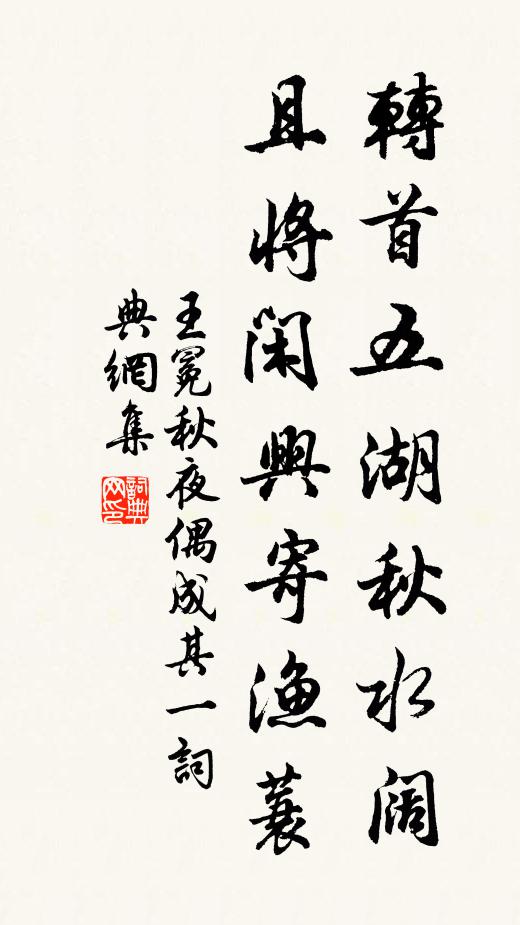 轉首五湖秋水阔
且將闲興寄漁蓑
王冕秋夜偶成其一詞
典網集
詞典网印